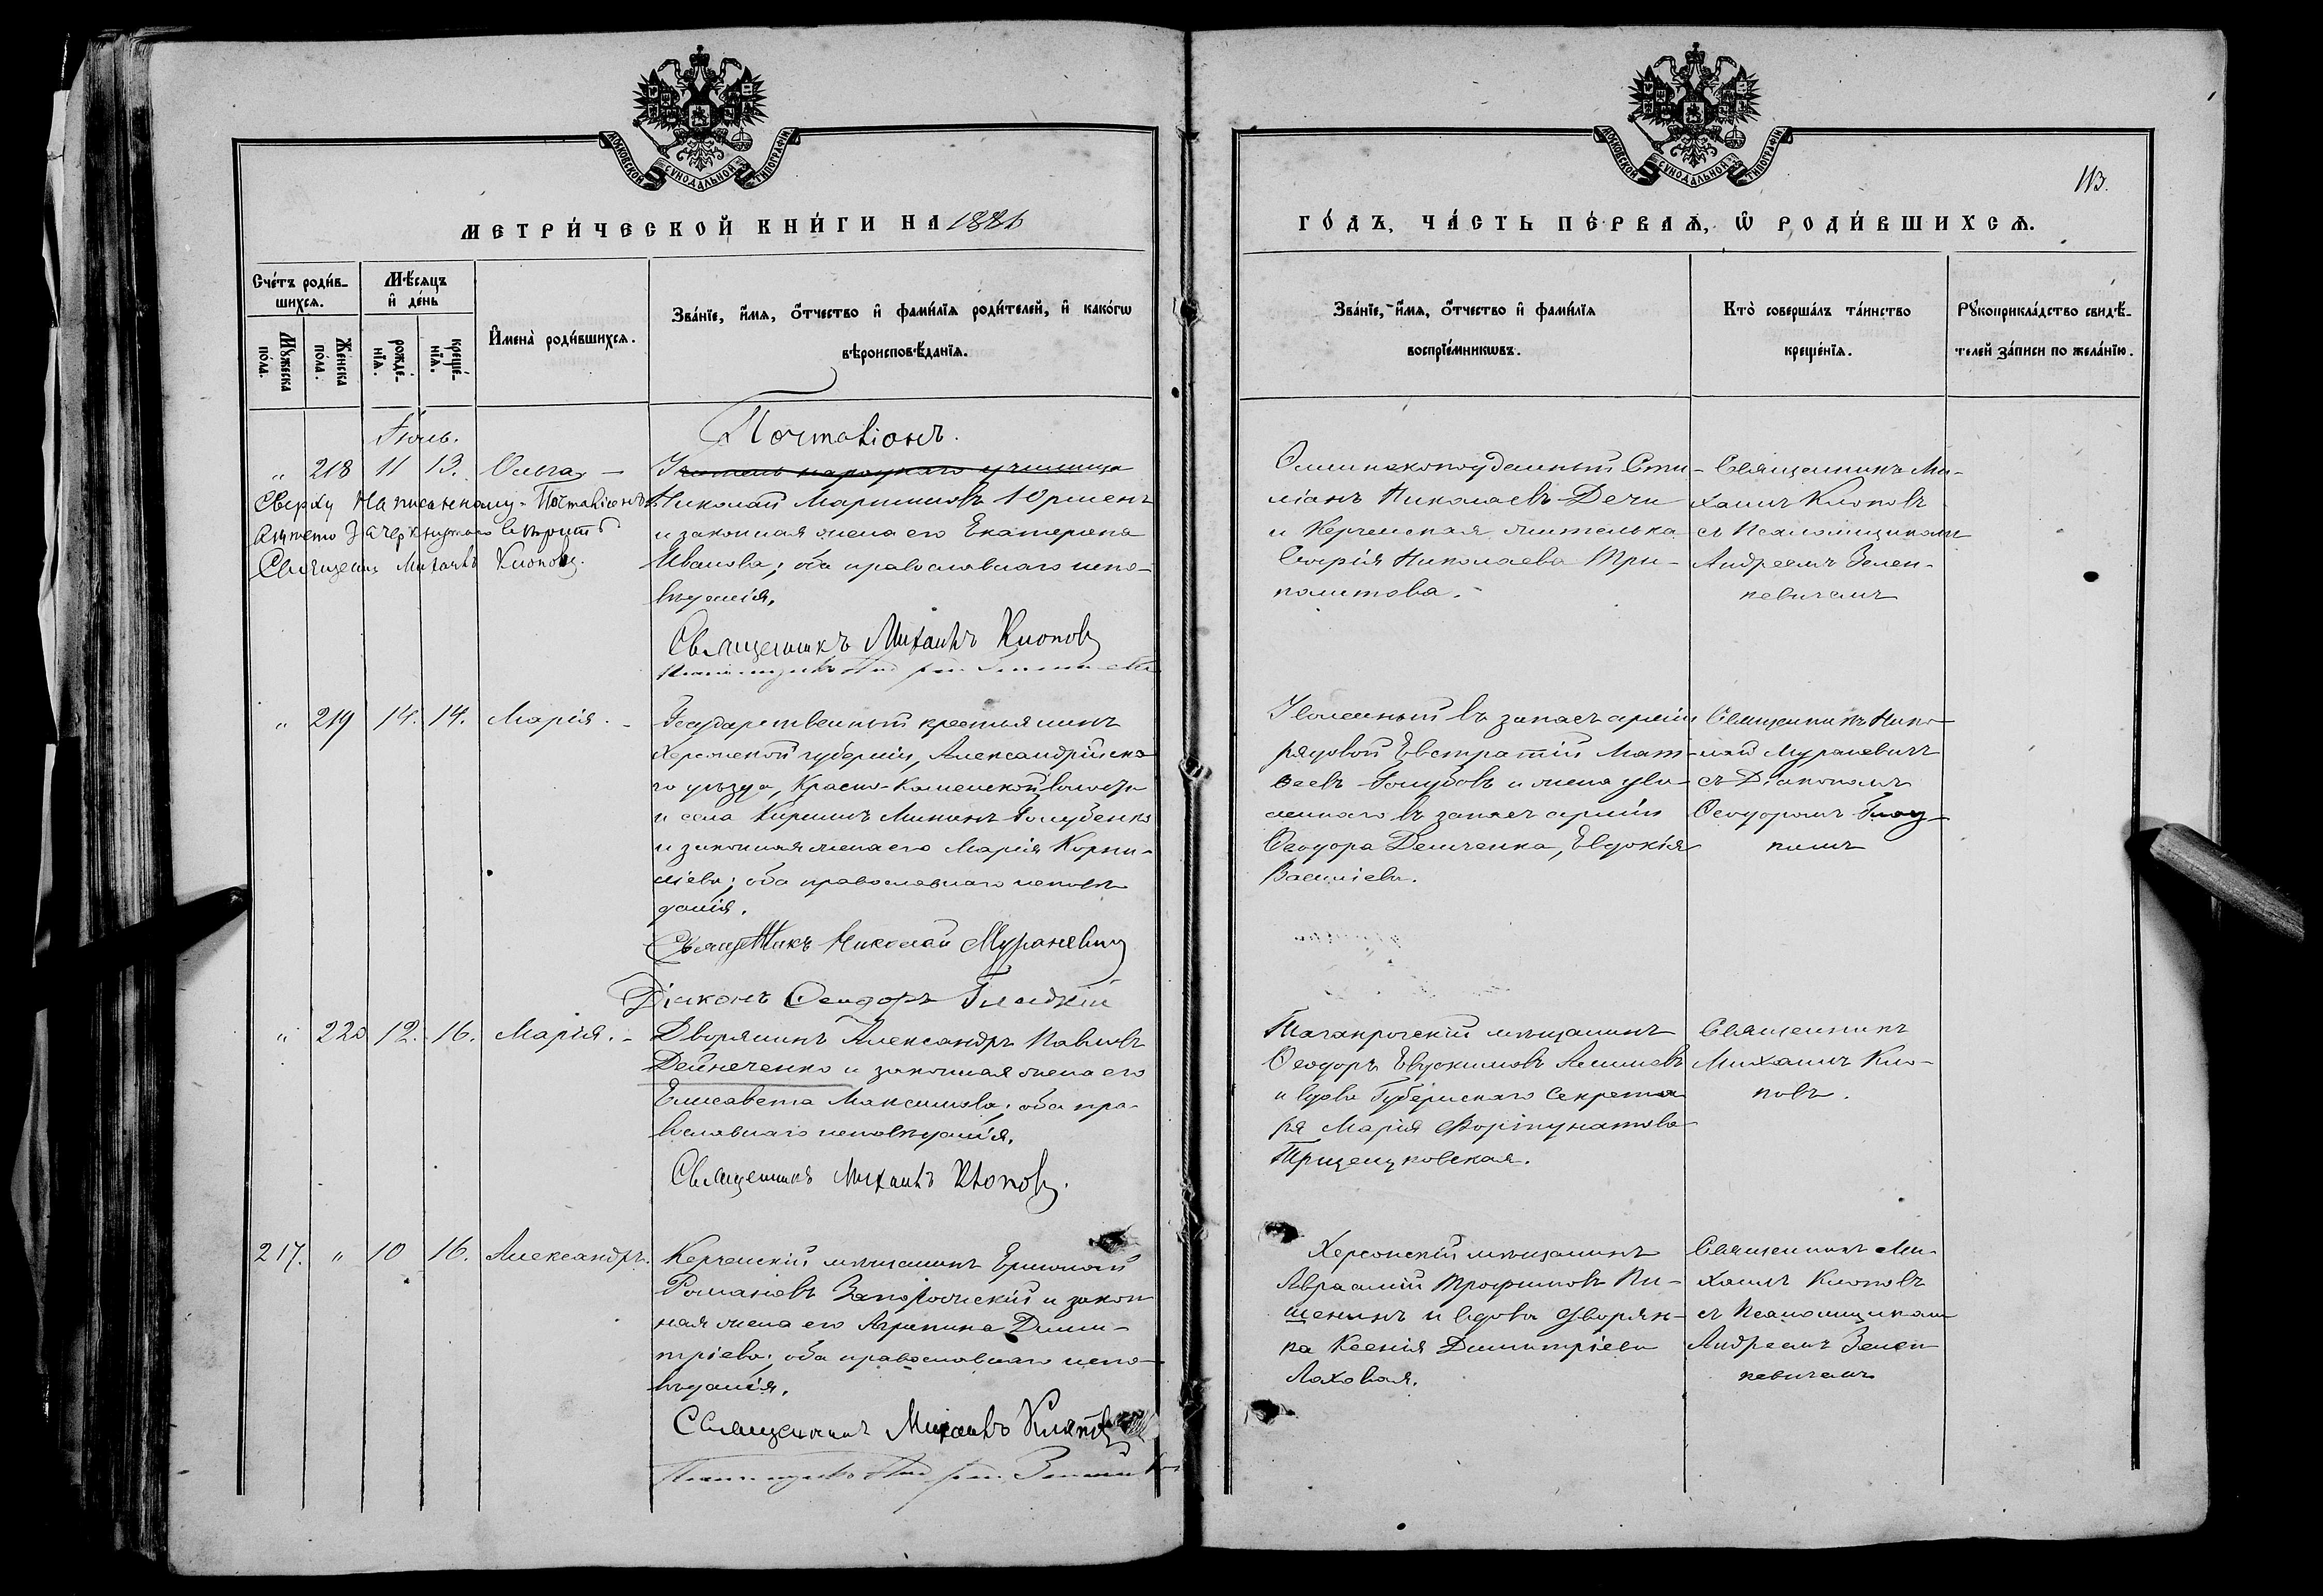 МОСКОВСКОЙ СѴНОДАЛЬНОЙ ТИПОГРАФІИ
МЕТРИ́ЧЕСКОЙ КНИ́ГИ НА 1886
Сче́тъ роди́в-
шихся.
Мѣ́сяцъ
и҆ де́нь
Мꙋ́жеска
по́ла.
Же́нска
по́ла.
рожде́-
нїѧ.
креще́-
нїѧ.
И҆мена̀ роди́вшихсѧ.
Зва́нїе, и҆́мѧ, ѻ҆́тчество и҆ фами́лїѧ роди́телей, и҆ како́гѡ
вѣроисповѣ́данїѧ.
Іюль.
Почталіонъ.
„ 218 11 13. Ольга – Учитель народнаго училища
Сверху написанному „Почталіонъ Николай
вмѣсто зачеркнутаго вѣрить и законная жена его Екатерина
Священ. Михаилъ Клоповъ. Иванова; оба православнаго испо-
вѣданія.
Священникъ Михаилъ Клоповъ
„ 219 14. 14. Марія. – Государственный крестьянинъ
Херсонской губерніи, Александрійска-
го уѣзда, Красно-Каменской волости
и села Кирилъ Мининъ Голубенко
и законная жена его Марія Корни-
ліева; оба православнаго исповѣ-
данія.
Священникъ Николай Мураневичъ
Діаконъ Ѳеодоръ Гладкій
„ 220 12. 16. Марія. – Дворянинъ Александръ Павловъ
Дейнеченко и законная жена его
Елисавета Максимова; оба пра-
вославнаго исповѣданія.
Священникъ Михаилъ Клоповъ.
217. „ 10 16. Александръ. Керченскій мѣщанинъ Ермолай
Романовъ Запорожскій и закон-
ная жена его Агрипина Дими-
тріева; оба православнаго испо-
вѣданія.
Священникъ Михаилъ Клоповъ
МОСКОВСКОЙ СѴНОДАЛЬНОЙ ТИПОГРАФІИ
113.
ГО́ДЪ, ЧА́СТЬ ПЕ́РВАѦ, Ѡ҆ РОДИ́ВШИХСѦ.
Зва́нїе, и҆́мѧ, ѻ҆́тчество и҆ фами́лїѧ
воспрїе́мникѡвъ.
Кто̀ соверша́лъ та́инство
креще́нїѧ.
Рꙋкоприкла́дство свидѣ́-
телей за́писи по жела́нїю.
Сти-
ліанъ Николаевъ
и Керченская жителька
Софія Николаева Три-
политова.
Священникъ Ми-
хаилъ Клоповъ
съ Псаломщикомъ
Андреемъ Зелен-
кевичемъ
Уволенный въ запасъ арміи
рядовой Евстратій Мат-
веевъ Голубовъ и жена уво-
леннаго въ запасъ арміи
Ѳеодора Демченка, Евдокія
Василіева.
Священникъ Нико-
лай Мураневичъ
съ Діакономъ
Ѳеодоромъ Глад-
кимъ
Таганрогскій мѣщанинъ
Ѳеодоръ Евдокимовъ
и вдова Губернскаго Секрета-
ря Марія Фортунатова
Священникъ
Михаилъ Кло-
повъ.
Херсонскій мѣщанинъ
Авраамій Трофимовъ Пи-
щенинъ и вдова дворян-
ка Ксенія Димитріева
Лаховая.
Священникъ Ми-
хаилъ Клоповъ
съ Псаломщикомъ
Андреемъ Зелен-
кевичемъ